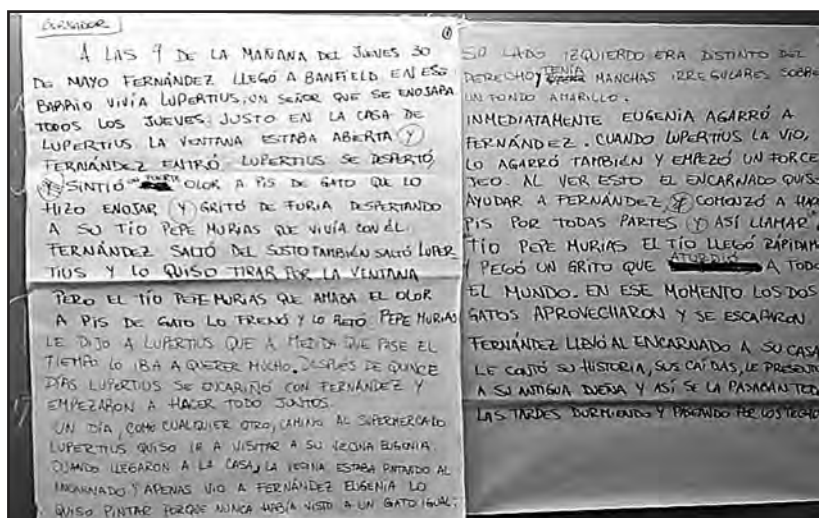 BORRADOR
①
A LAS 9 DE LA MAÑANA DEL JUEVES 30
DE MAYO FERNÁNDEZ LLEGÓ A BANFIELD EN ESE
BARRIO VIVÍA LUPERTIUS, UN SEÑOR QUE SE ENOJABA
TODOS LOS JUEVES. JUSTO EN LA CASA DE
LUPERTIUS LA VENTANA ESTABA ABIERTA Y
FERNÁNDEZ ENTRÓ. LUPERTIUS SE DESPERTÓ,
Y SINTIÓ UN FUERTE OLOR A PIS DE GATO QUE LO
HIZO ENOJAR Y GRITÓ DE FURIA DESPERTANDO
A SU TÍO PEPE MURIAS QUE VIVÍA CON ÉL.
FERNÁNDEZ SALTÓ DEL SUSTO TAMBIÉN SALTÓ LUPER
TIUS Y LO QUISO TIRAR POR LA VENTANA
PERO EL TÍO PEPE MURIAS QUE AMABA EL OLOR
A PIS DE GATO LO FRENÓ Y LO RETÓ. PEPE MURIAS
LE DIJO A LUPERTIUS QUE A MEDIDA QUE PASE EL
TIEMPO LO IBA A QUERER MUCHO. DESPUÉS DE QUINCE
DÍAS LUPERTIUS SE ENCARIÑÓ CON FERNÁNDEZ Y
EMPEZARON A HACER TODO JUNTOS.
UN DÍA, COMO CUALQUIER OTRO, CAMINO AL SUPERMERCADO
LUPERTIUS QUISO IR A VISITAR A SU VECINA EUGENIA.
CUANDO LLEGARON A LA CASA, LA VECINA ESTABA PINTANDO AL
ENCARNADO Y APENAS VIO A FERNÁNDEZ EUGENIA LO
QUISO PINTAR PORQUE NUNCA HABÍA VISTO A UN GATO IGUAL:
SU LADO IZQUIERDO ERA DISTINTO DEL
DERECHO, TENÍA MANCHAS IRREGULARES SOBRE
UN FONDO AMARILLO.
INMEDIATAMENTE EUGENIA AGARRÓ A
FERNÁNDEZ. CUANDO LUPERTIUS LA VIO,
LO AGARRÓ TAMBIÉN Y EMPEZÓ UN FORCE
JEO. AL VER ESTO EL ENCARNADO QUISO
AYUDAR A FERNÁNDEZ Y COMENZÓ A HAC
PIS POR TODAS PARTES Y ASÍ LLAMAR
TÍO PEPE MURIAS EL TÍO LLEGÓ RÁPIDAM
Y PEGÓ UN GRITO QUE ATURDIÓ A TODO
EL MUNDO. EN ESE MOMENTO LOS DOS
GATOS APROVECHARON Y SE ESCAPARON
FERNÁNDEZ LLEVÓ AL ENCARNADO A SU CASA
LE CONTÓ SU HISTORIA, SUS CAÍDAS, LE PRESENTÓ
A SU ANTIGUA DUEÑA Y ASÍ SE LA PASABAN TODA
LAS TARDES DURMIENDO Y PASEANDO POR LOS TECHO